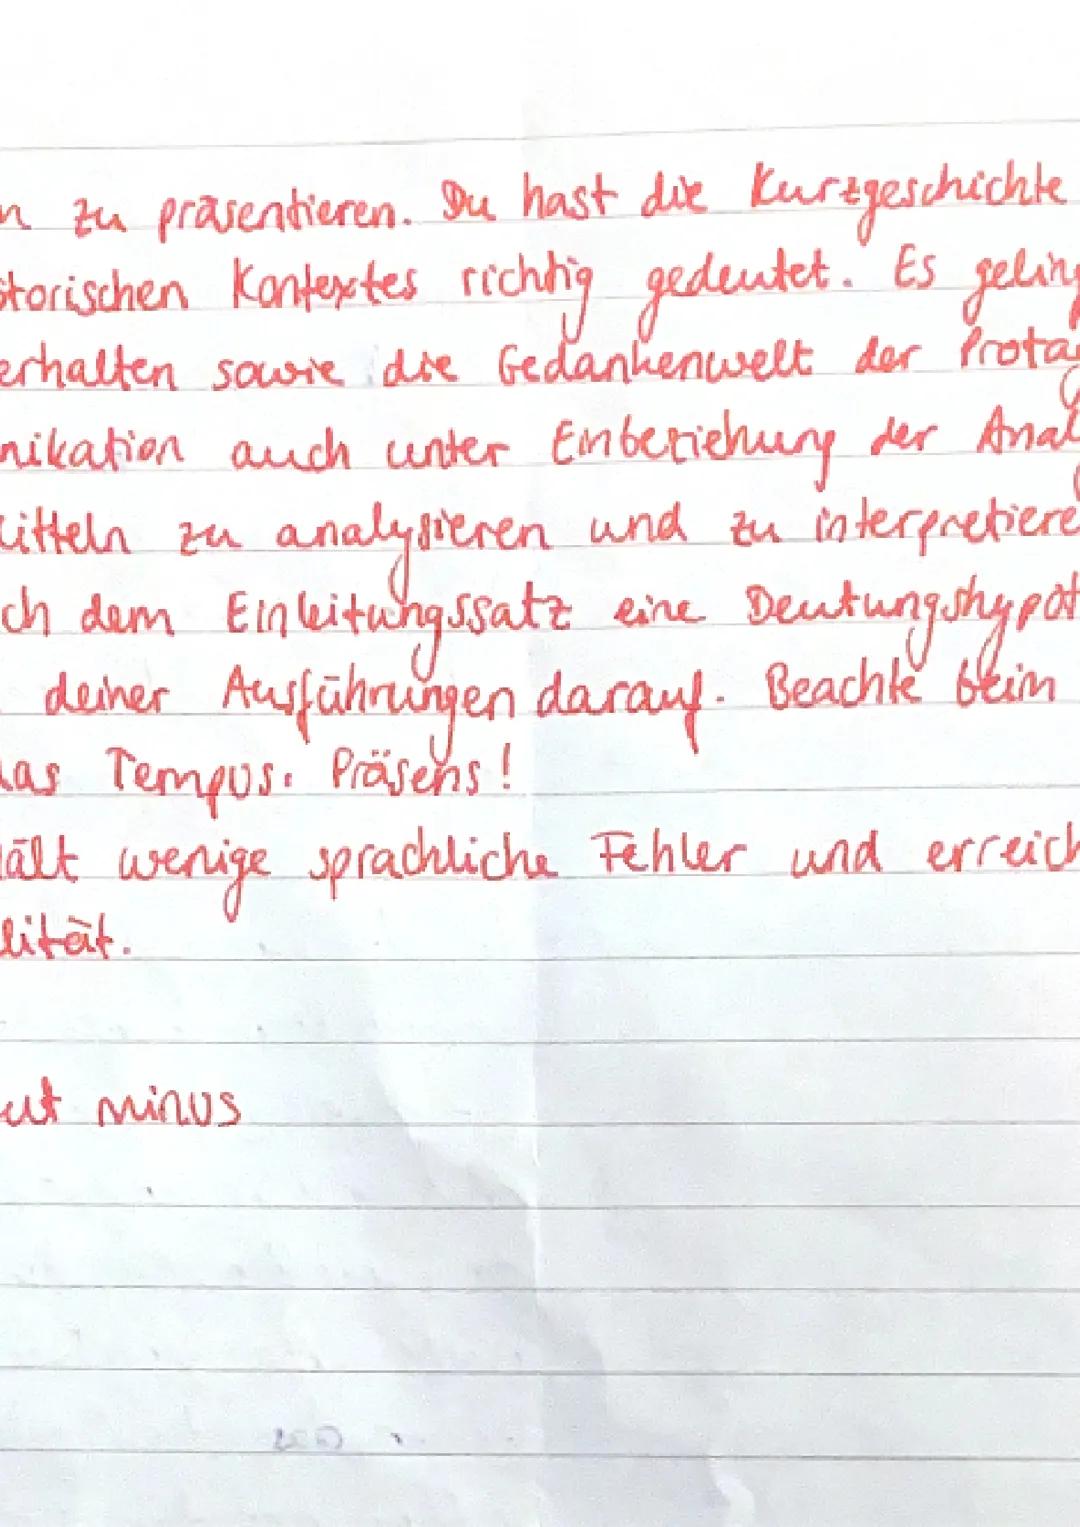 n zu präsentieren. Du hast die Kurzgeschichte
storischen Kontextes richtig gedeutet. Es geling
erhalten sowie die Gedankenwelt der Protag
nikation auch unter Einbeziehung der Anal
itteln zu analysieren und zu interpretiere
ch dem Einleitungssatz eine Deutungshypot
deiner Ausführungen darauf. Beachte beim
das Tempus: Präsens!
ält wenige sprachliche Fehler und erreich
lität.
ut minus